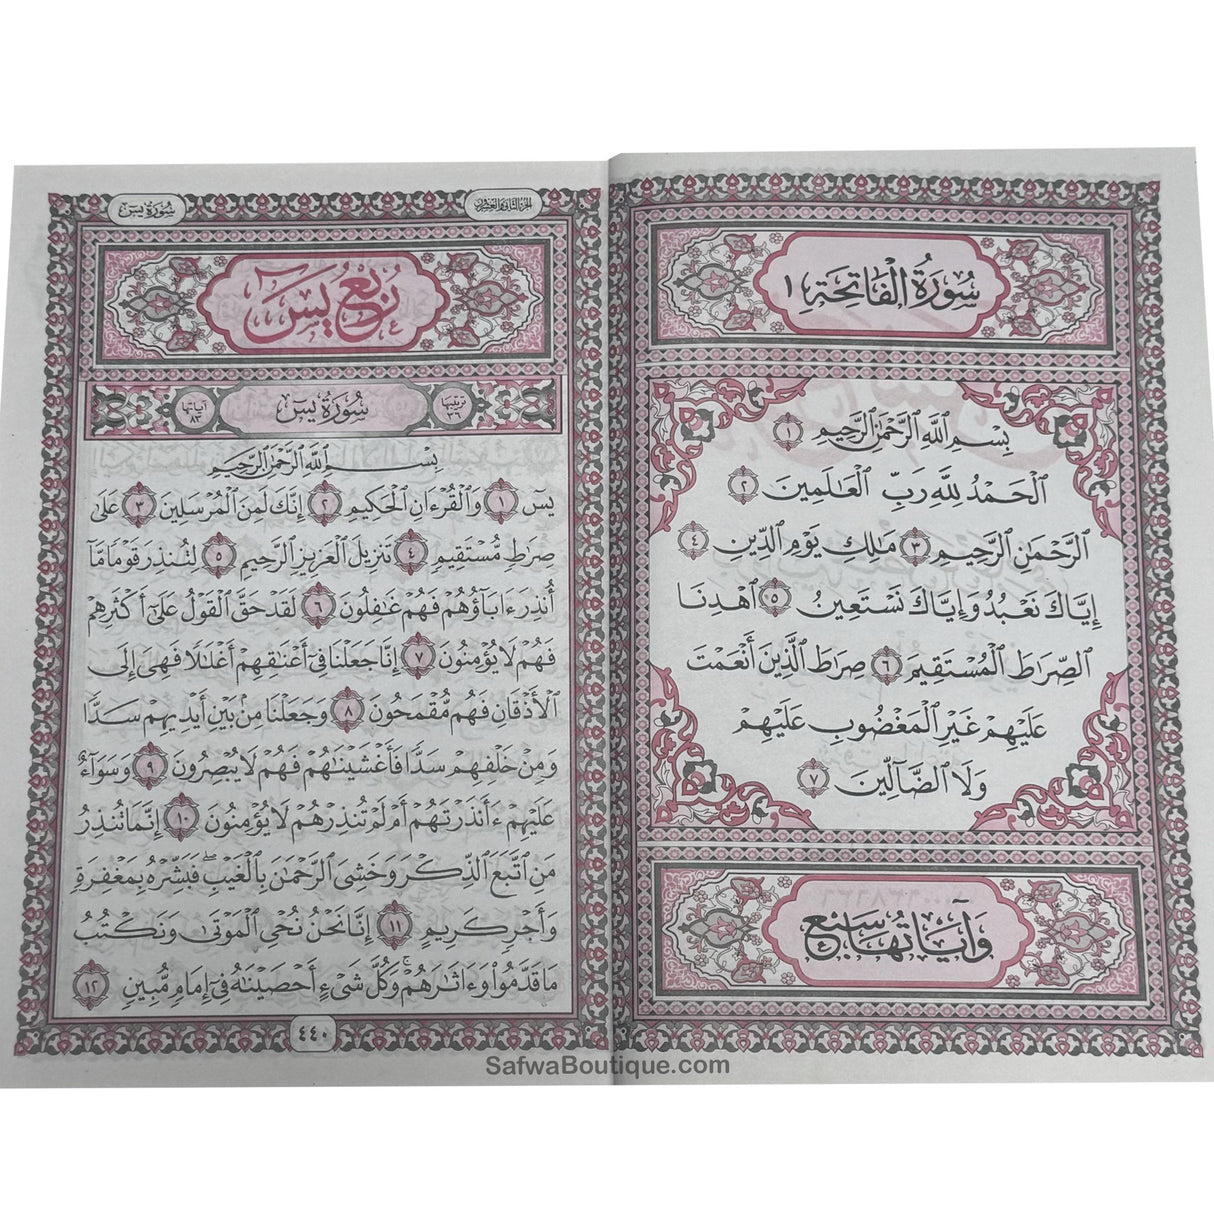 سُورَةُ الْفَاتِحَةِ ١
بِسْمِ ٱللَّهِ ٱلرَّحْمَٰنِ ٱلرَّحِيمِ ١
ٱلْحَمْدُ لِلَّهِ رَبِّ ٱلْعَٰلَمِينَ ٢
ٱلرَّحْمَٰنِ ٱلرَّحِيمِ ٣ مَٰلِكِ يَوْمِ ٱلدِّينِ ٤
إِيَّاكَ نَعْبُدُ وَإِيَّاكَ نَسْتَعِينُ ٥ ٱهْدِنَا
ٱلصِّرَٰطَ ٱلْمُسْتَقِيمَ ٦ صِرَٰطَ ٱلَّذِينَ أَنْعَمْتَ
عَلَيْهِمْ غَيْرِ ٱلْمَغْضُوبِ عَلَيْهِمْ
وَلَا ٱلضَّآلِّينَ ٧
وَآيَاتُهَا سَبْعٌ
الجزء الثاني والعشرون
سُورَةُ يسٓ
رُبْعُ يسٓ
ترتيبها ٣٦
سُورَةُ يسٓ
آياتها ٨٣
بِسْمِ ٱللَّهِ ٱلرَّحْمَٰنِ ٱلرَّحِيمِ
يسٓ ١ وَٱلْقُرْءَانِ ٱلْحَكِيمِ ٢ إِنَّكَ لَمِنَ ٱلْمُرْسَلِينَ ٣ عَلَىٰ
صِرَٰطٍ مُّسْتَقِيمٍ ٤ تَنزِيلَ ٱلْعَزِيزِ ٱلرَّحِيمِ ٥ لِتُنذِرَ قَوْمًا مَّآ
أُنذِرَ ءَابَآؤُهُمْ فَهُمْ غَٰفِلُونَ ٦ لَقَدْ حَقَّ ٱلْقَوْلُ عَلَىٰٓ أَكْثَرِهِمْ
فَهُمْ لَا يُؤْمِنُونَ ٧ إِنَّا جَعَلْنَا فِىٓ أَعْنَٰقِهِمْ أَغْلَٰلًا فَهِىَ إِلَى
ٱلْأَذْقَانِ فَهُم مُّقْمَحُونَ ٨ وَجَعَلْنَا مِنۢ بَيْنِ أَيْدِيهِمْ سَدًّا
وَمِنْ خَلْفِهِمْ سَدًّا فَأَغْشَيْنَٰهُمْ فَهُمْ لَا يُبْصِرُونَ ٩ وَسَوَآءٌ
عَلَيْهِمْ ءَأَنذَرْتَهُمْ أَمْ لَمْ تُنذِرْهُمْ لَا يُؤْمِنُونَ ١٠ إِنَّمَا تُنذِرُ
مَنِ ٱتَّبَعَ ٱلذِّكْرَ وَخَشِىَ ٱلرَّحْمَٰنَ بِٱلْغَيْبِ ۖ فَبَشِّرْهُ بِمَغْفِرَةٍ
وَأَجْرٍ كَرِيمٍ ١١ إِنَّا نَحْنُ نُحْىِ ٱلْمَوْتَىٰ وَنَكْتُبُ
مَا قَدَّمُوا۟ وَءَاثَٰرَهُمْ ۚ وَكُلَّ شَىْءٍ أَحْصَيْنَٰهُ فِىٓ إِمَامٍ مُّبِينٍ ١٢
٤٤٠
SafwaBoutique.com